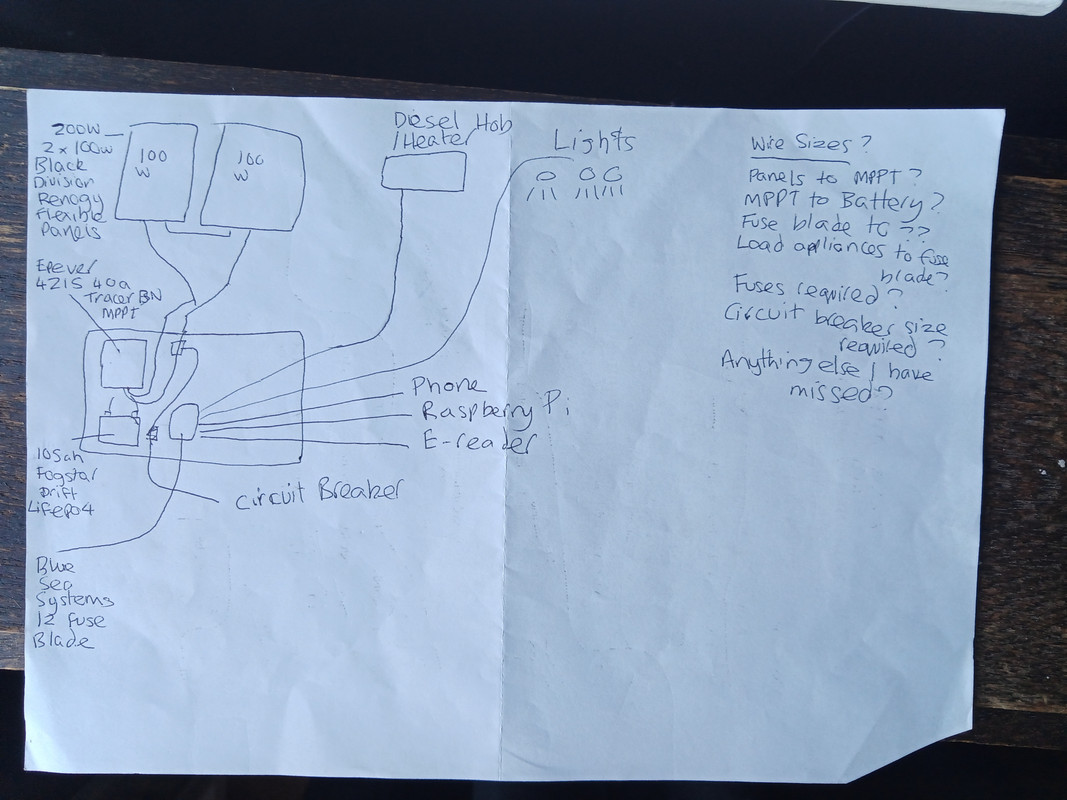 200W
2 x 100w
Black
Division
Renogy
Flexible
Panels
100
W
100
W
Diesel Hob
/Heater
Lights
Epever
4215 40a
Tracer BN
MPPT
Phone
Raspberry Pi
E-reader
105ah
Fogstar
Drift
Lifepo4
Circuit Breaker
Blue
Sea
Systems
12 fuse
Blade
Wire Sizes?
Panels to MPPT?
MPPT to Battery?
Fuse blade to ??
Load appliances to fuse
blade?
Fuses required?
Circuit breaker size
required?
Anything else I have
missed?